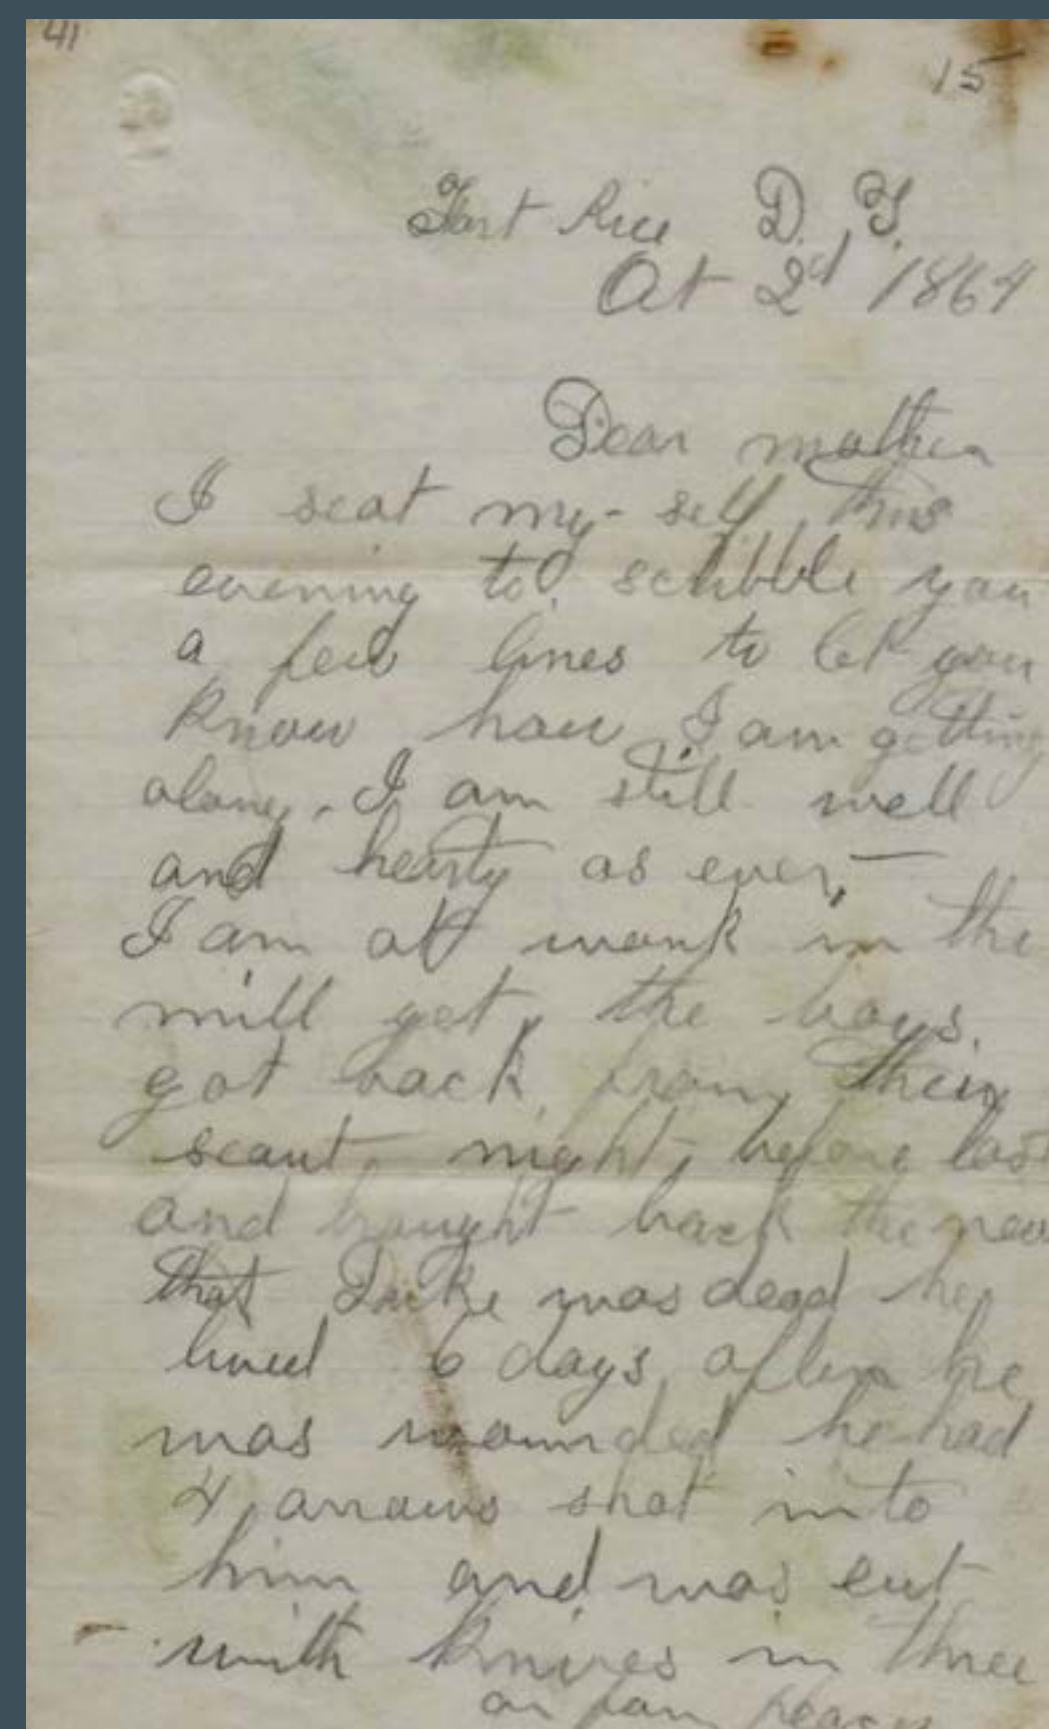 41
15
Fort Rice D. T.
Oct 2d 1864
Dear mother
I seat my-self this
evening to scribble you
a few lines to let you
know how I am getting
along. I am still well
and hearty as ever,
I am at work in the
mill yet, the boys
got back from their
scout night before last
and brought back the news
that was dead he
lived 6 days after he
was wounded he had
4 arrows shot into
him and was cut
with knives in three
or four places